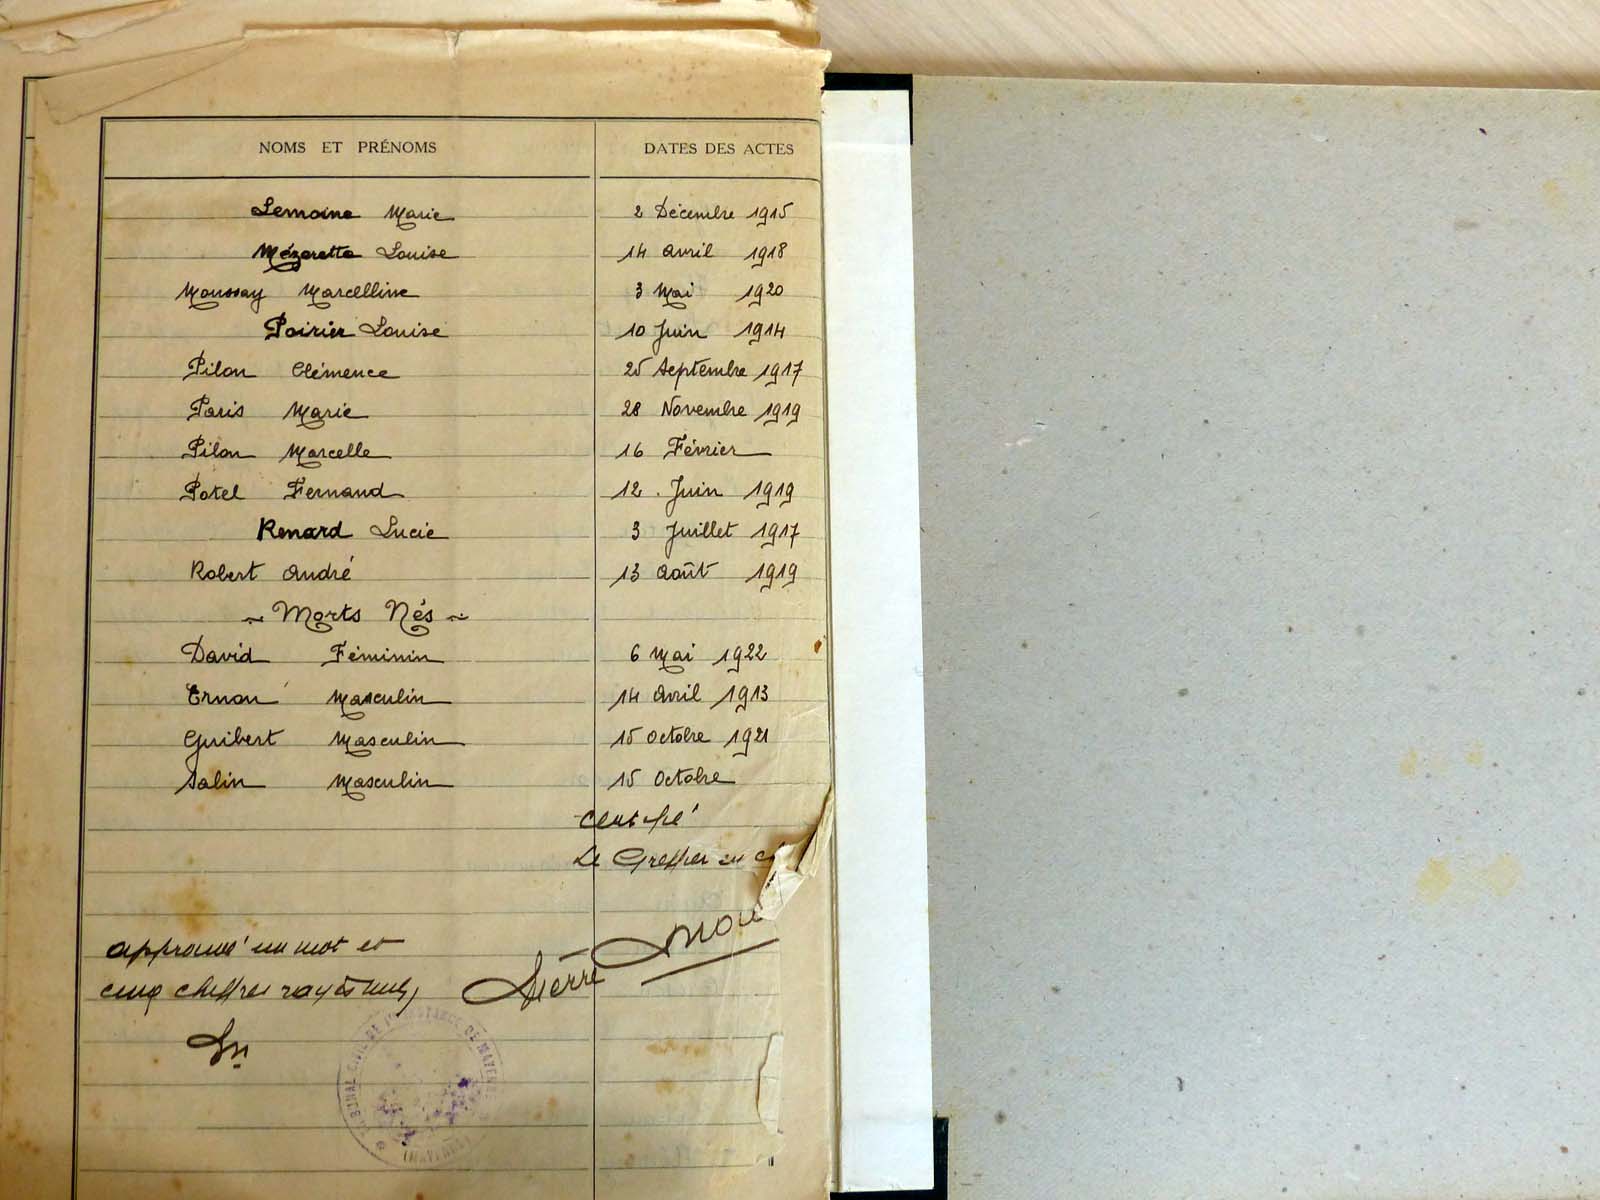 NOMS ET PRÉNOMS DATES DES ACTES
Lemoine Marie 2 Décembre 1915
Mézerette Louise 14 Avril 1918
Moussay Marcelline 3 Mai 1920
Poirier Louise 10 Juin 1914
Pilon Clémence 25 Septembre 1917
Paris Marie 28 Novembre 1919
Pilon Marcelle 16 Février
Potel Fernand 12 Juin 1919
Renard Lucie 3 Juillet 1917
Robert André 13 Août 1919
~ Morts Nés ~
David Féminin 6 Mai 1922
Ernou Masculin 14 Avril 1913
Guibert Masculin 15 Octobre 1921
Salin Masculin 15 Octobre
Certifié
Le Greffier en
approuvé un mot et
cinq chiffres rayés nuls
Pierre
TRIBUNAL CIVIL DE 1re INSTANCE DE MAYENNE
(MAYENNE)